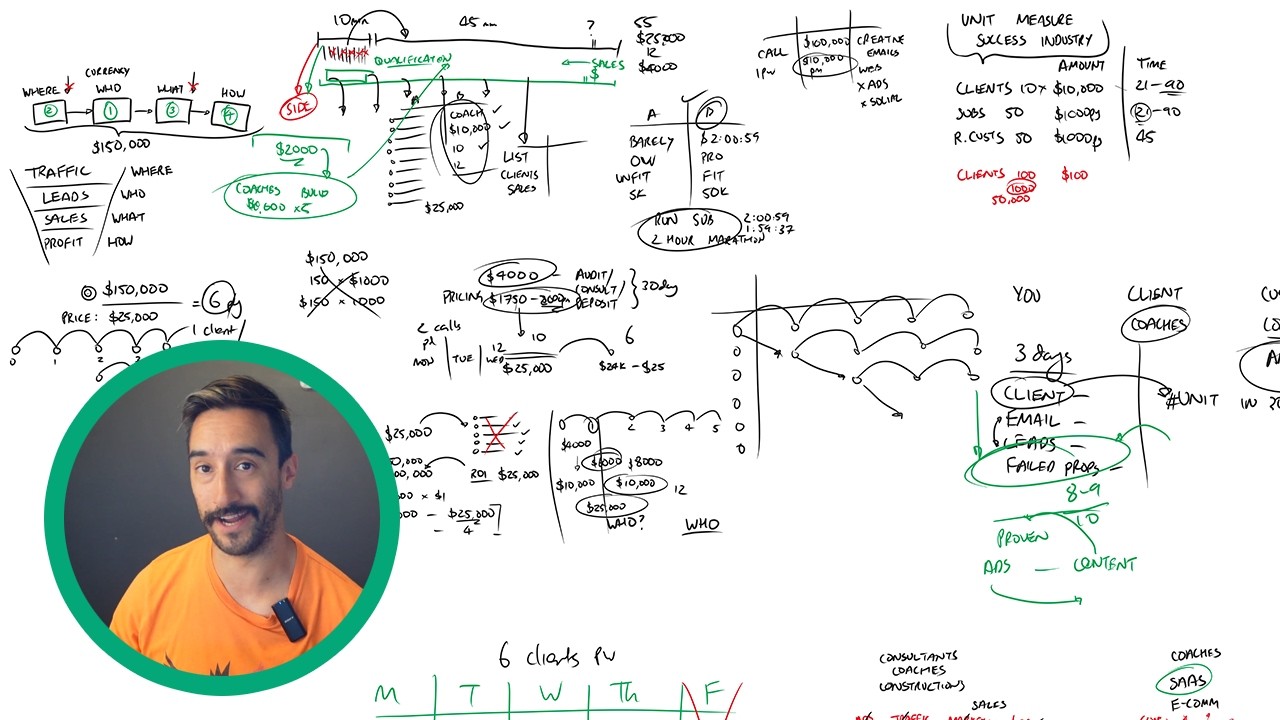 10min
45 min
?
QUALIFICATION
← SALES
$
SIDE
CURRENCY
WHERE WHO WHAT HOW
2 1 3 4
$150,000
TRAFFIC WHERE
LEADS WHO
SALES WHAT
PROFIT HOW
$2000
COACHES BUILD
COACH ✓
$10,000 ✓
10 ✓
12
$25,000
LIST
CLIENTS
SALES
55
$25,000
12
$4000
A
BARELY 2:00:59
PRO
UNFIT FIT
5K 50K
RUN SUB
2 HOUR MARATHON
2:00:59
1:59:37
CALL $100,000 CREATIVE
1PW $10,000 pm EMAILS
WEB
× ADS
× SOCIAL
UNIT MEASURE
SUCCESS INDUSTRY
AMOUNT TIME
CLIENTS 10× $10,000 21-90
JOBS 50 $1000ps 21-90
R.CUSTS 50 $1000ps 45
CLIENTS 100 $100
1000
50,000
$150,000
PRICE: $25,000
= 6
1 client/
0 1 2 3
$150,000
150 × $1000
$150 × 1000
$4000 - AUDIT/
CONSULT/
PRICING $1750 - 2000 DEPOSIT
30 day
2 calls
MON TUE WED
10
12
$25,000
6
$24K - $25
$25,000
ROI $25,000
× $1
- $25,000
4
0 1 2 3 4 5
$4000
$6000 $8000
$10,000 $10,000 12
$25,000
WHO? WHO
YOU CLIENT
COACHES
3 days
CLIENT -
#UNIT
EMAIL -
LEADS -
FAILED PROPS -
8-9
10
PROVEN
ADS - CONTENT
6 clients PW
M T W Th F
CONSULTANTS
COACHES
CONSTRUCTIONS
SALES
COACHES
SAAS
E-COMM